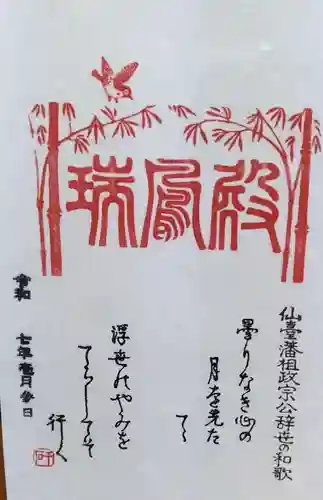 瑞鳳殿
仙臺藩祖政宗公辞世の和歌
曇りなき心の
月を先た
てゝ
浮世のやみを
てらしてそ
行く
令和
七年 月 日